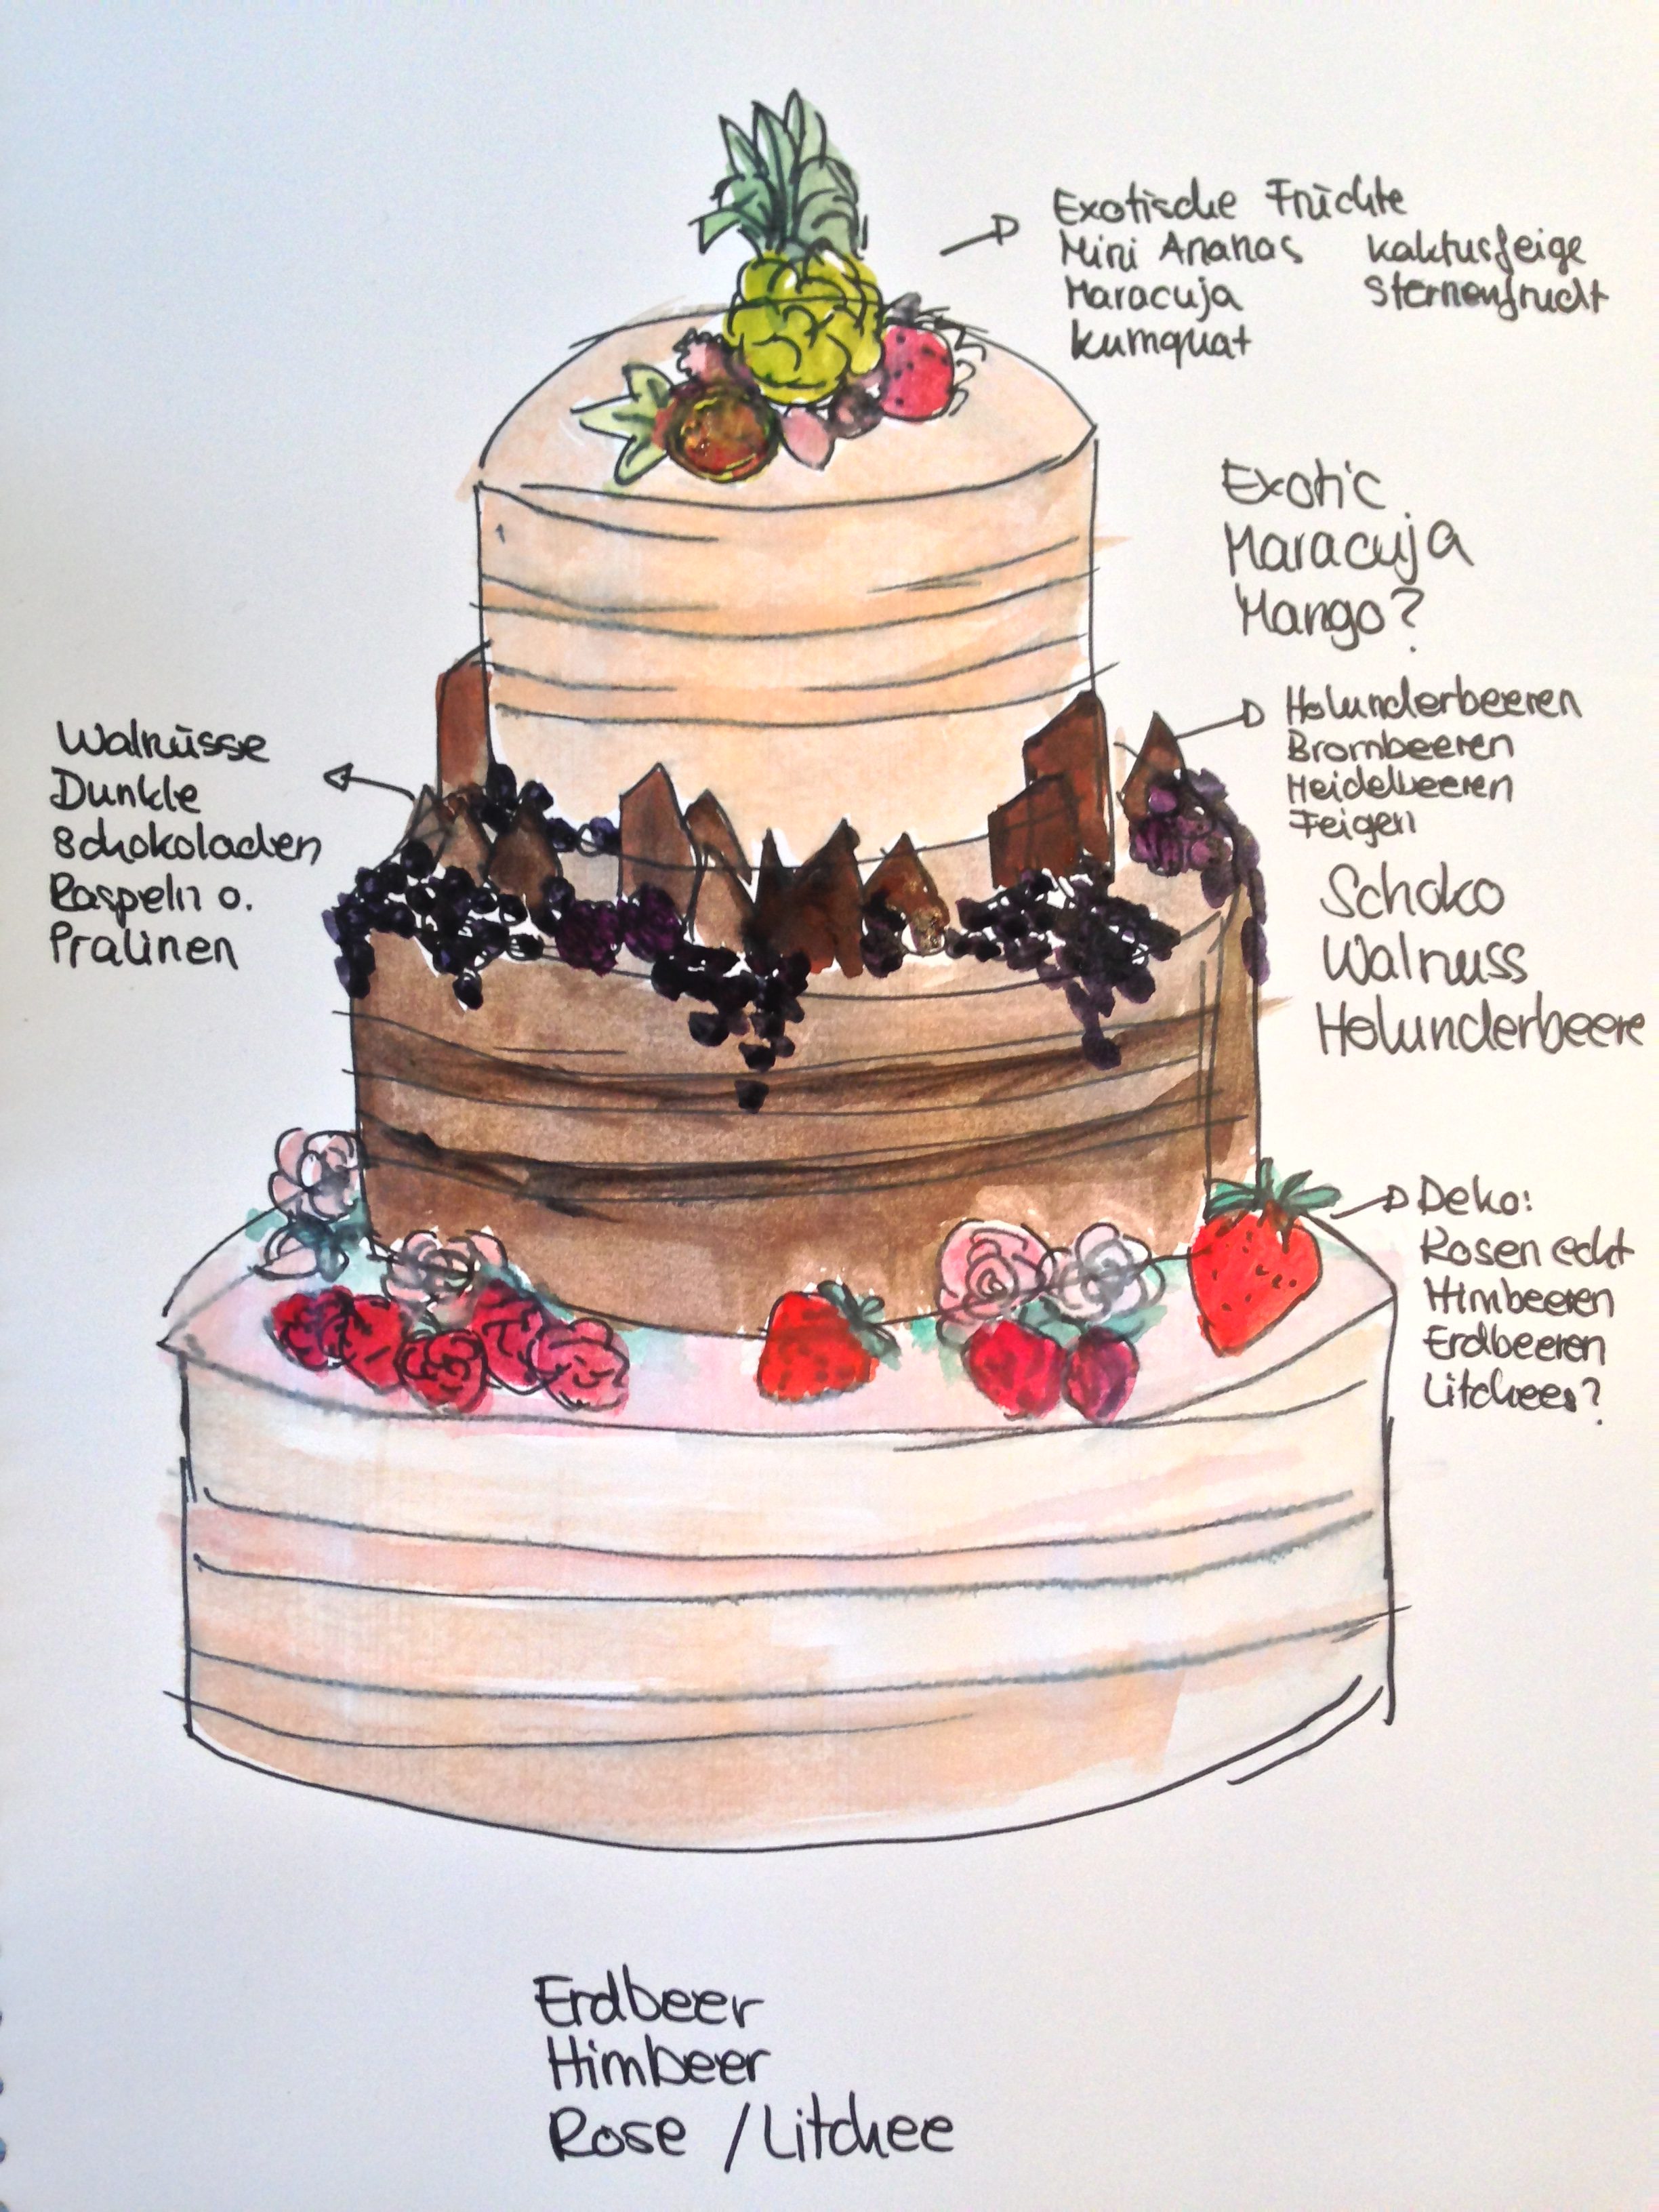 Exotische Früchte
Mini Ananas Kaktusfeige
Maracuja Sternenfrucht
Kumquat
Exotic
Maracuja
Mango?
Walnüsse
Dunkle
Schokoladen
Raspeln o.
Pralinen
Holunderbeeren
Brombeeren
Heidelbeeren
Feigen
Schoko
Walnuss
Holunderbeere
Deko:
Rosen echt
Himbeeren
Erdbeeren
Litchees?
Erdbeer
Himbeer
Rose / Litchee